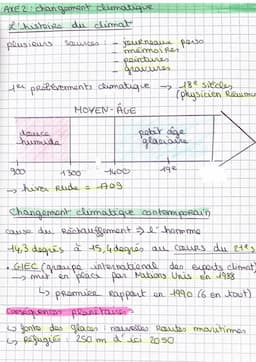 AXE 2 : changement climatique
L'histoire du climat
plusieurs sources : - journeaux perso
- mémoires
- peintures
- gravures
1er prélèvements climatique → 18e siècles
(physicien Réaumur
MOYEN-ÂGE
douce
humide
petit âge
glaciaire
900
1300
1400
19e
→ hiver rude = 1709
Changement climatique contemporain
cause du Réchauffement → l'homme
14,3 degrés à 15,4 degrés au cours du 21e s
• GIEC (groupe international des experts climat)
→ mit en place par Nations Unis en 1988
↳ premier rapport en 1990 (6 en tout)
Conséquences planétaires
↳ fonte des glaces : nouvelles routes maritimes
↳ réfugiés : 250 m d'ici 2050